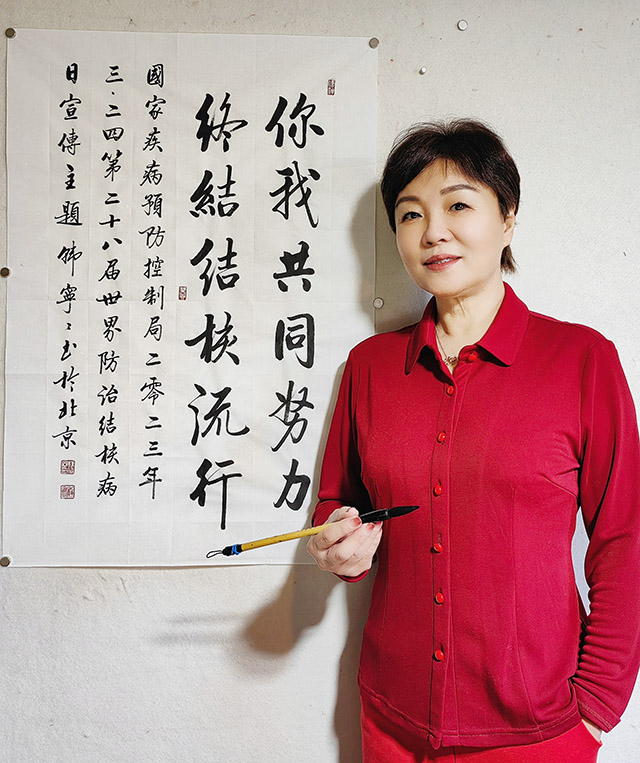 你我共同努力
終結结核流行
國家疾病預防控制局二零二三年
三·二四第二十八届世界防治结核病
日宣傳主題 寧〻书於北京